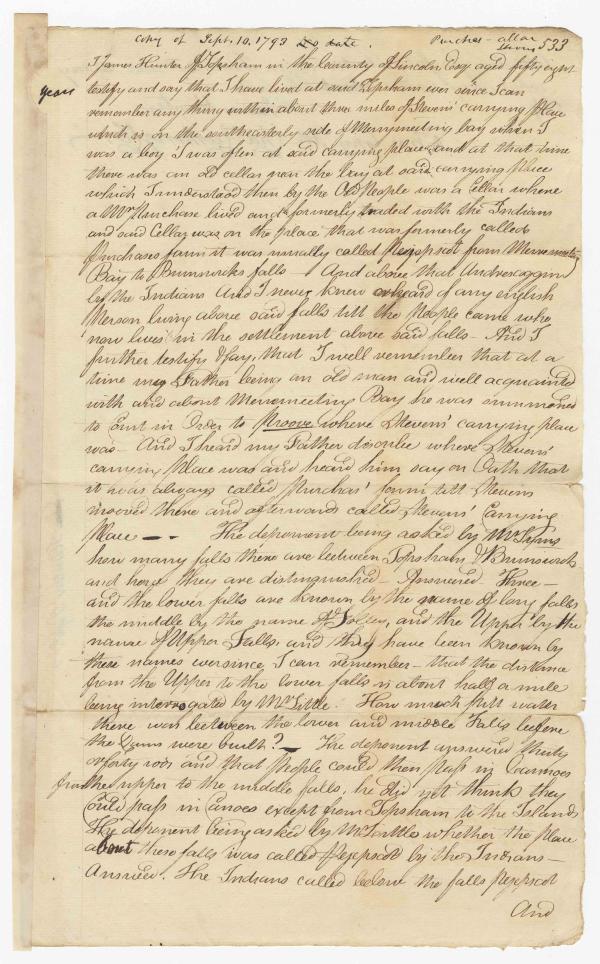 Copy of Sept. 10, 1793 no date. Purchas - altar
533
I James Hunter of Topsham in the County of Lincoln Esqr aged fifty eight
years testify and say that I have lived at said Topsham ever since I can
remember any thing within about three miles of Stevens' carrying place
which is on the southeasterly side of Merrymeeting bay when I
was a boy I was often at said carrying place, and at that time
there was an old cellar near the bay at said carrying place
which I understood then by the Old People was a Cellar where
a Mr Purchase lived and formerly traded with the Indians
and said Cellar was on the place that was formerly called
Purchases farm it was usually called Pejepscot from Merremeeting
Bay to Brunswicks falls — And above that Andrescoggin
by the Indians And I never knew or heard of any english
Person living above said falls till the People came who
now lives in the settlement above said falls — And I
further testify & say, that I well remember that at a
time my Father being an old man and well acquainted
with and about Merremeeting Bay he was summoned
to Court in Order to Proove where Stevens' carrying place
was — And I heard my Father describe where Stevens'
carrying Place was and heard him say on Oath that
it was always called Purchas' farm till Stevens
mooved there and afterward called Stevens' Carrying
place — — The deponent being asked by Mr
how many falls there are between Topsham & Brunswick
and how they are distinguished — Answered Three —
and the lower falls are known by the name of long falls
the middle by the name of and the Upper by the
name of Upper Falls, and they have been known by
these names ever since I can remember — that the distance
from the Upper to the lower falls is about half a mile
being interrogated by Mr Little. How much still water
there was between the lower and middle Falls before
the Dams were built? — The deponent answered thirty
or forty rods and that People could then pass in Canoes
from the upper to the middle falls, he did not think they
could pass in Canoes except from Topsham to the Islands
The deponent being asked by Mr Little whether the place
about these falls was called Pejepscot by the Indians —
Answered. The Indians called below the falls Pejepscot
And